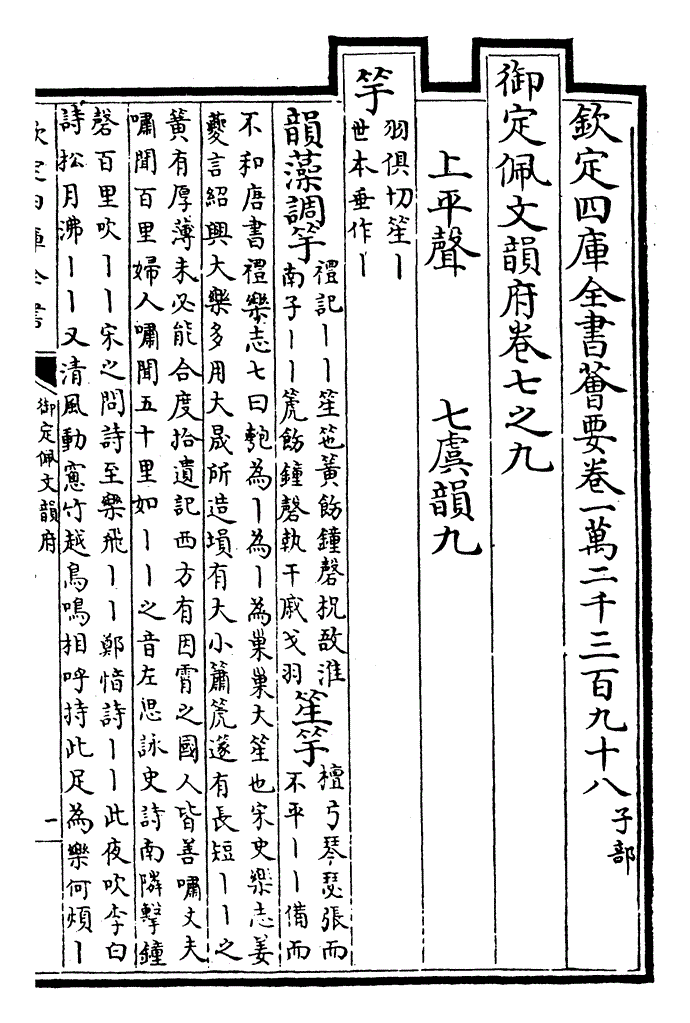 欽定四庫全書薈要卷一萬二千三百九十八 子部
御定佩文韻府卷七之九
上平聲 七虞韻九
竽 羽俱切笙丨
世本垂作丨
韻藻調竽 禮記丨丨笙笹簧飭鐘磬柷敔淮
南子丨丨箎飭鐘磬執干戚戈羽 笙竽 檀弓琴瑟張而
不平丨丨備而
不和唐書禮樂志七曰匏為丨為丨為巢巢大笙也宋史樂志姜
夔言紹興大樂多用大晟所造塤有大小簫箎篴有長短丨丨之
簧有厚薄未必能合度拾遺記西方有因霄之國人皆善嘯丈夫
嘯聞百里婦人嘯聞五十里如丨丨之音左思詠史詩南隣擊鐘
磬百里吹丨丨宋之問詩至樂飛丨丨鄭愔詩丨丨此夜吹李白
詩松月沸丨丨又清風動窻竹越鳥鳴相呼持此足為樂何煩丨
欽定四庫全書
御定佩文韻府
一